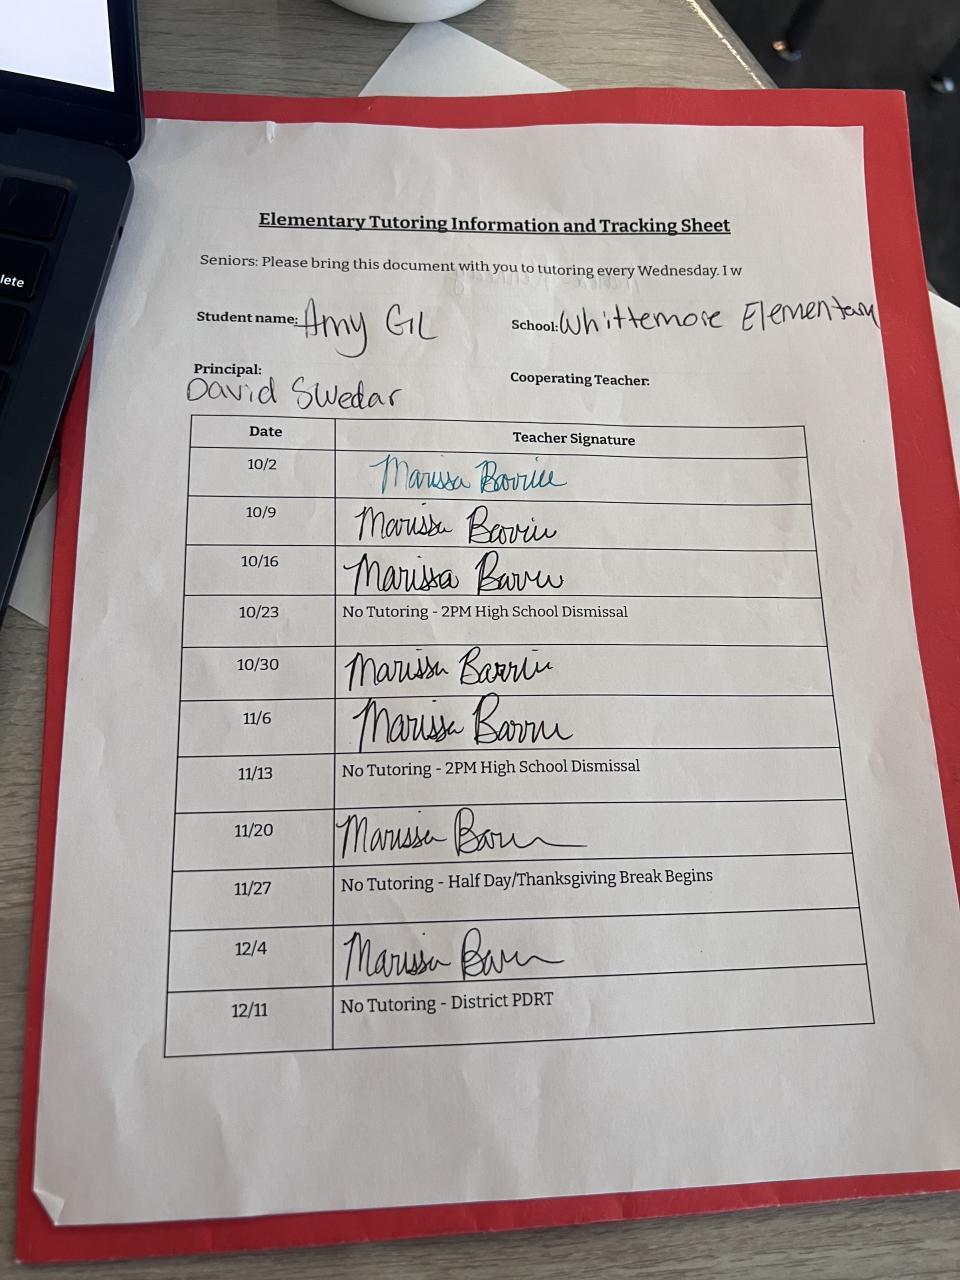 lete
Elementary Tutoring Information and Tracking Sheet
Seniors: Please bring this document with you to tutoring every Wednesday. I w
Student name: Amy Gil School: Whittemore Elementary
Principal: Cooperating Teacher:
David Swedar
Date Teacher Signature
10/2 Marissa
10/9 Marissa
10/16 Marissa
10/23 No Tutoring - 2PM High School Dismissal
10/30 Marissa
11/6 Marissa
11/13 No Tutoring - 2PM High School Dismissal
11/20 Marissa
11/27 No Tutoring - Half Day/Thanksgiving Break Begins
12/4 Marissa
12/11 No Tutoring - District PDRT